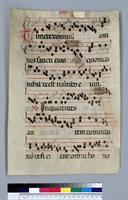 Timete dominū om
nes sancti eius quoniam
nihil deest timentib eum.
Inquirentes
au tem dominum
nō defici ent omni bo no